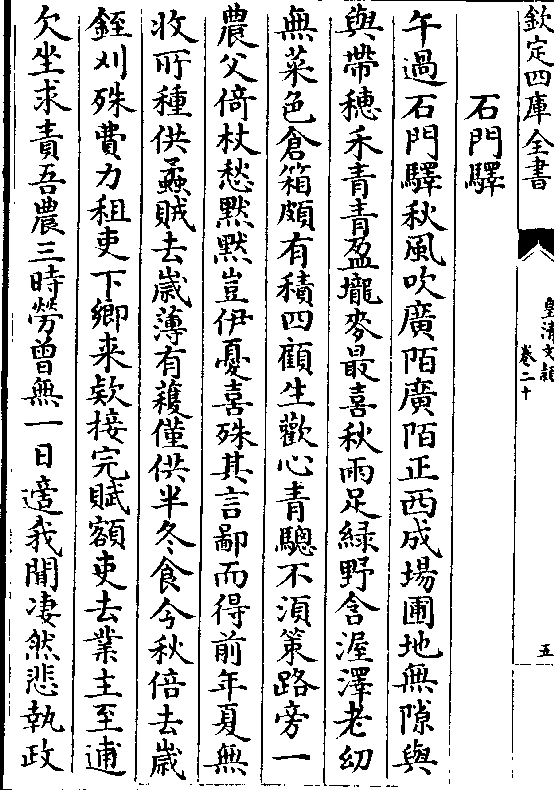 欽定四庫全書
皇清文穎
卷二十
五
石門驛
午過石門驛秋風吹廣陌廣陌正西成場圃地無隙與
與帶穗禾青青盈壠麥最喜秋雨足綠野含渥澤老幼
無菜色倉箱頗有積四顧生歡心青驄不須策路旁一
農父倚杖愁黙黙豈伊憂喜殊其言鄙而得前年夏無
收所種供蟊賊去歲薄有穫僅供半冬食兮秋倍去歲
銍刈殊費力租吏下鄉来欵接完賦額吏去業主至逋
欠坐求責吾農三時勞曾無一日適我聞凄然悲執政